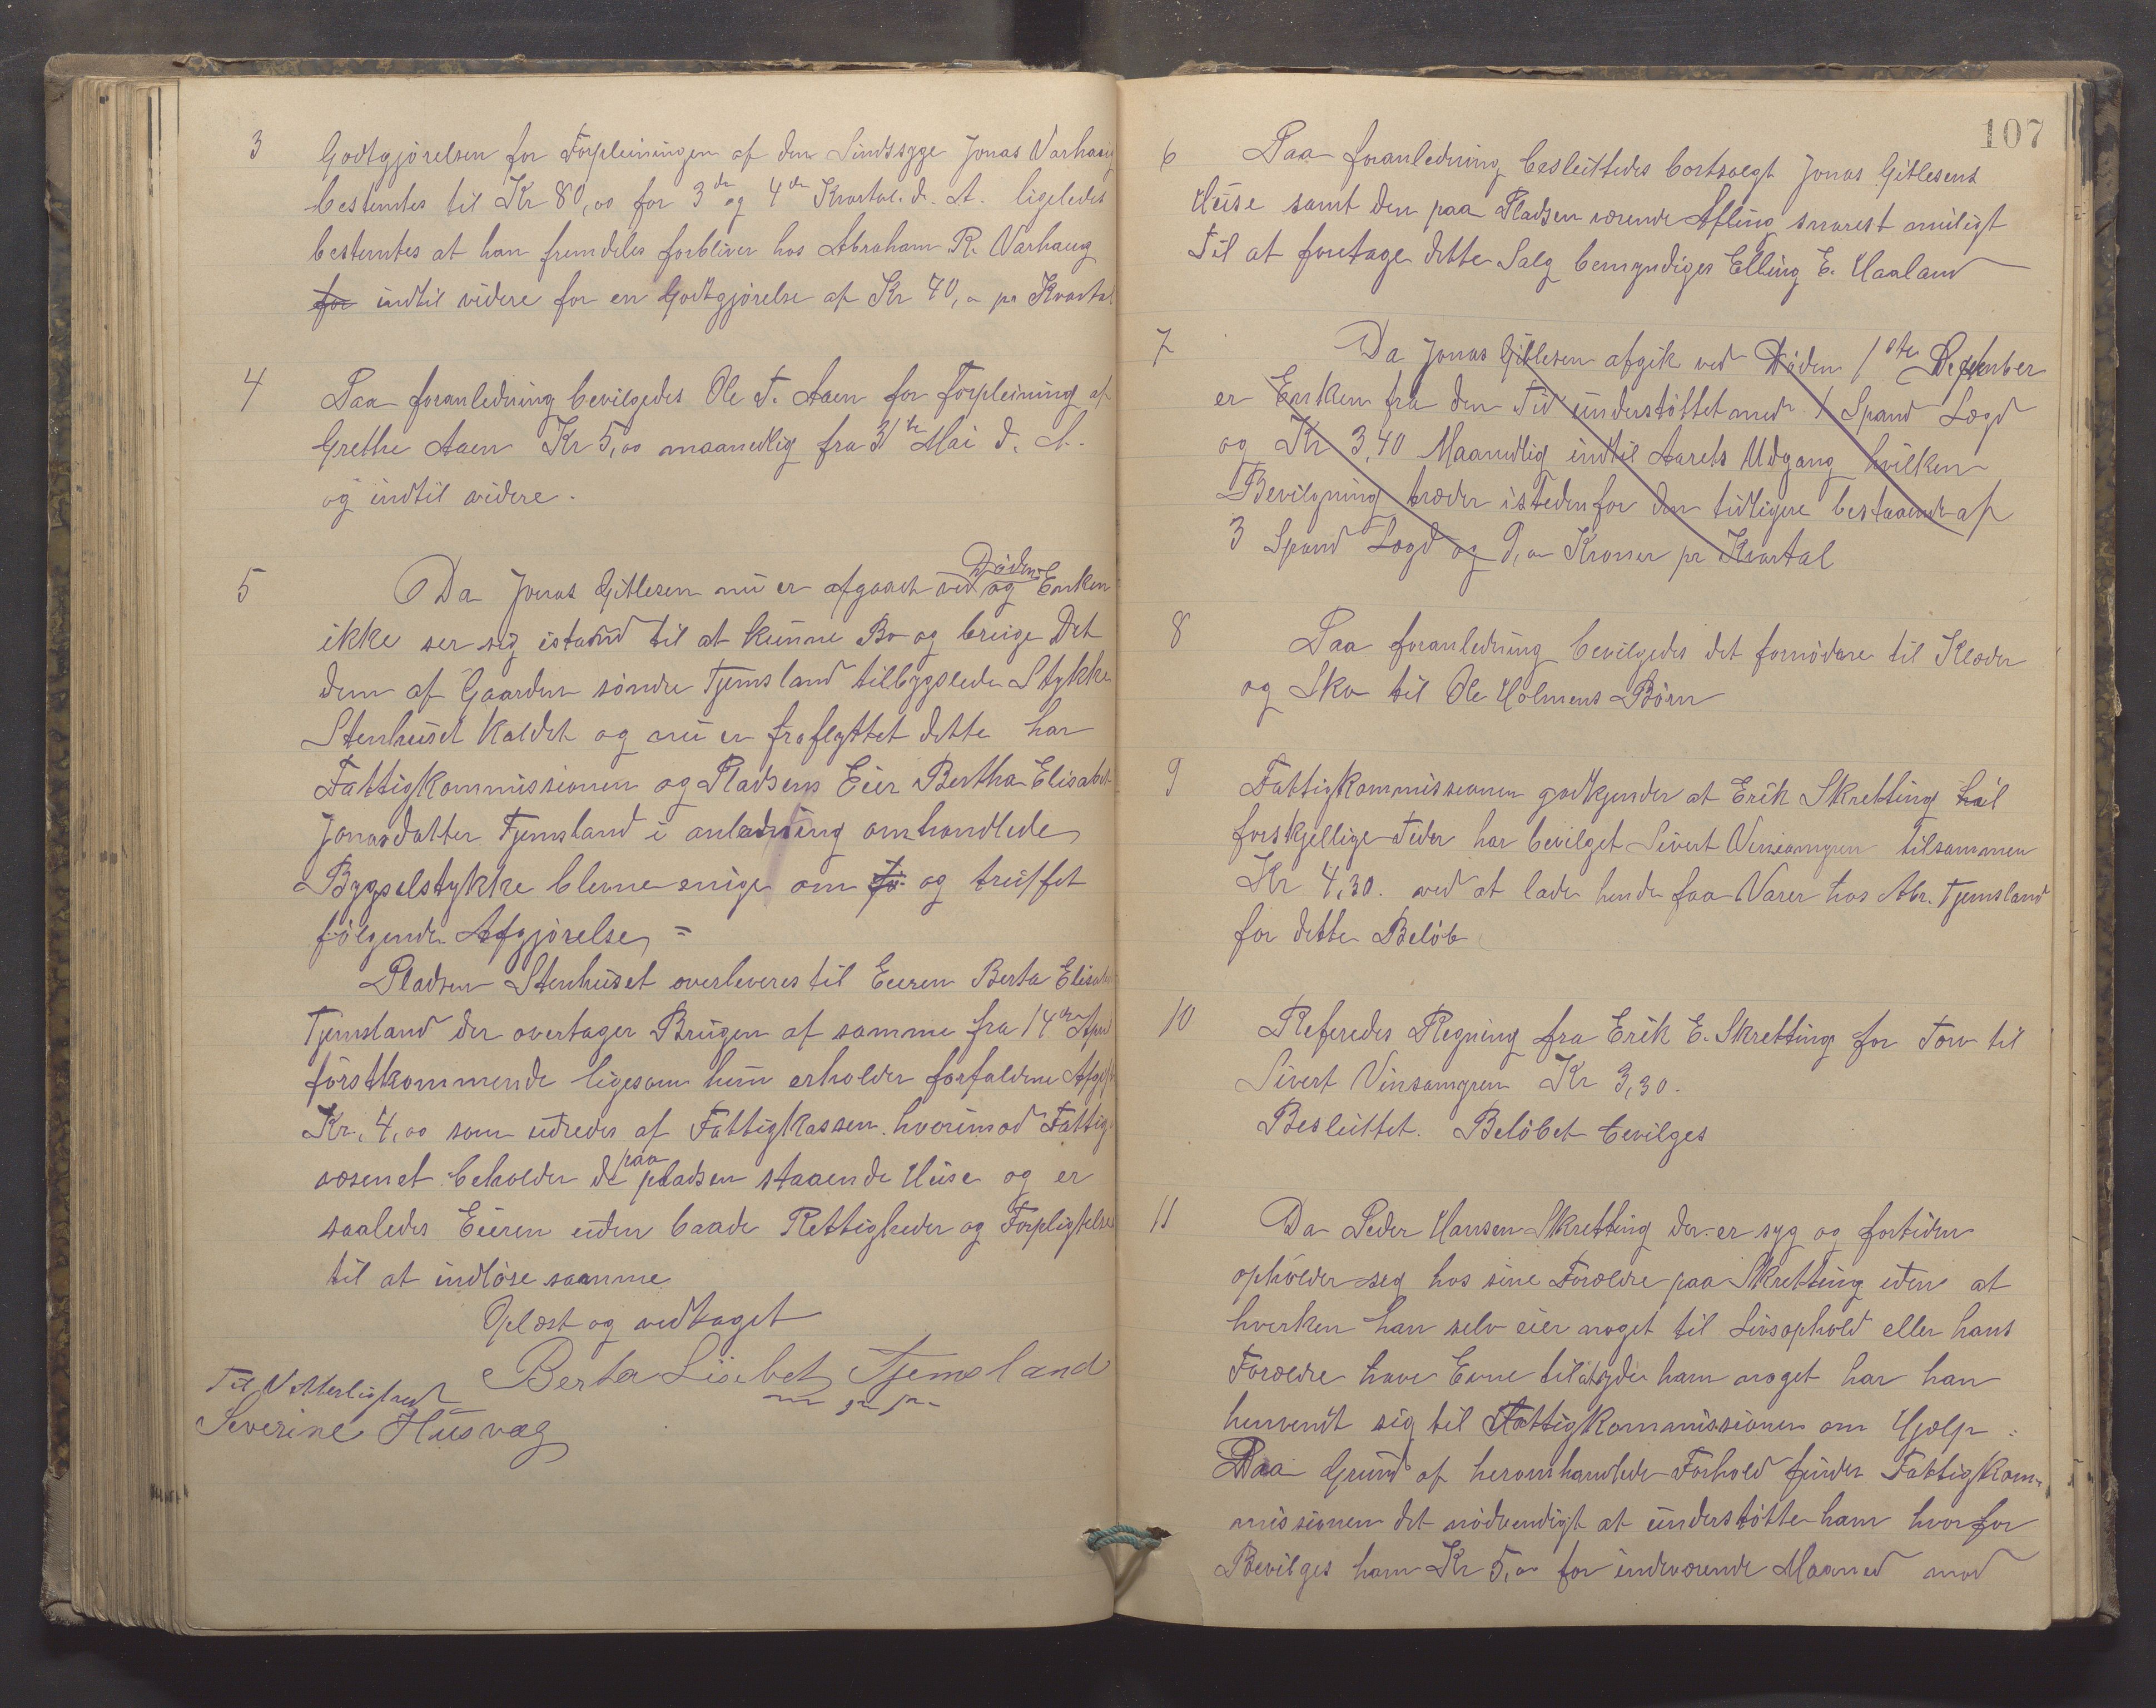 3 Godtgjörelsen for Forpleiningen af den Sindssyge Jonas Varhaug
bestemtes til Kr 80,00 for 3die og 4de Kvartal d. A. ligeledes
bestemtes at han fremdeles forbliver hos Abraham R. Varhaug
for indtil videre for en Godtgjörelse af Kr 40,00 pr Kvartal
4 Paa foranledning bevilgedes Ole T. Aaen for Forpleining af
Grethe Aaen Kr 5,00 maanedlig fra 31te Mai d. A.
og indtil videre.
5 Da Jonas Gitlesen nu er afgaaet ved Döden og Enken
ikke ser sig istand til at kunne Bo og bruge Det
dem af Gaarden söndre Tjemsland tilbygslede Stykke
Stenhuset Kaldet og nu er fraflyttet dette har
Fattigkommissionen og Pladsens Eier Bertha Elisabet
Jonasdatter Tjemsland i anledning omhandlede
Bygselstykke blevne enige om fö og truffet
fölgende Afgjörelse =
Pladsen Stenhuset overleveres til Eieren Berta Elisabet
Tjemsland der overtager Brugen af samme fra 14de April
förstkommende ligesom hun erholder forfaldene Afgift
Kr. 4,00 som udredes af Fattigkassen hvorimod Fattig-
væsenet beholder de paa pladsen staaende Huse og er
saaledes Eieren uden baade Rettigheder og Forpligtelse
til at indlöse samme
Oplæst og vedtaget
Berta Lisebet Tjemsland
m. p. P.
Til Vitterlighed
Severine Husvæg
107
6 Paa foranledning besluttedes bortsolgt Jonas Gitlesens
Huse samt den paa Pladsen værende Afling snarest muligt
Til at foretage dette Salg bemyndiges Elling E. Haaland
7 Da Jonas Gitlesen afgik ved Döden 1ste September
er Enken fra den Tid understöttet med 1 Spand Lægd
og Kr 3,40 Maanedlig indtil Aarets Udgang hvilken
Bevilgning træder istedenfor den tidligere bestaaende af
3 Spand Lægd og 9,00 Kroner pr Kvartal
8 Paa foranledning bevilgedes det fornödne til Klæder
og Sko til Ole Holmens Börn
9 Fattigkommissionen godkjender at Erik Skretting til
forskjellige Tider har bevilget Sivert Vinsamyren tilsammen
Kr 4,30. ved at lade hende faa Varer hos Abr. Tjemsland
for dette Belöb
10 Referedes Regning fra Erik E. Skretting for Torv til
Sivert Vinsamyren Kr 3,30.
Besluttet. Belöbet bevilges
11 Da Peder Hansen Skretting der er syg og fortiden
opholder seg hos sine Forældre paa Skretting uden at
hverken han selv eier noget til Livsophold eller hans
Forældre have Evne til at yde ham noget har han
henvendt sig til Fattigkommissionen om Hjælp :
Paa Grund af heromhandlede Forhold finder Fattigkom-
missionen det nödvendigt at understötte ham hvorfor
Bevilges ham Kr 5,00 for indeværende Maaned mod